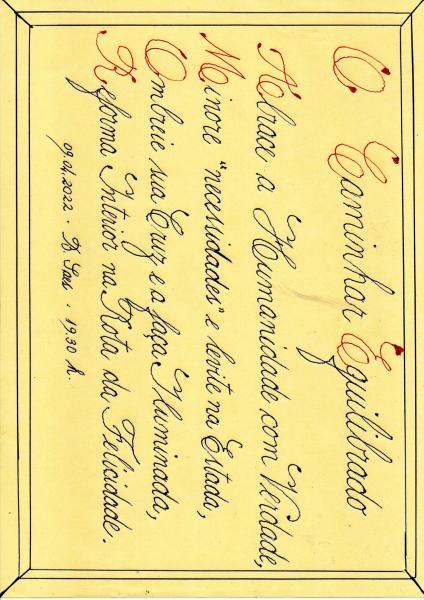 O Caminhar Equilibrado.
Abrace a Humanidade com Verdade,
Minore "necessidades" e levite na Estada,
Ombreie sua Cruz e a faça Iluminada,
Reforma Interior na Rota da Felicidade.
09.04.2022. 19,30 h.